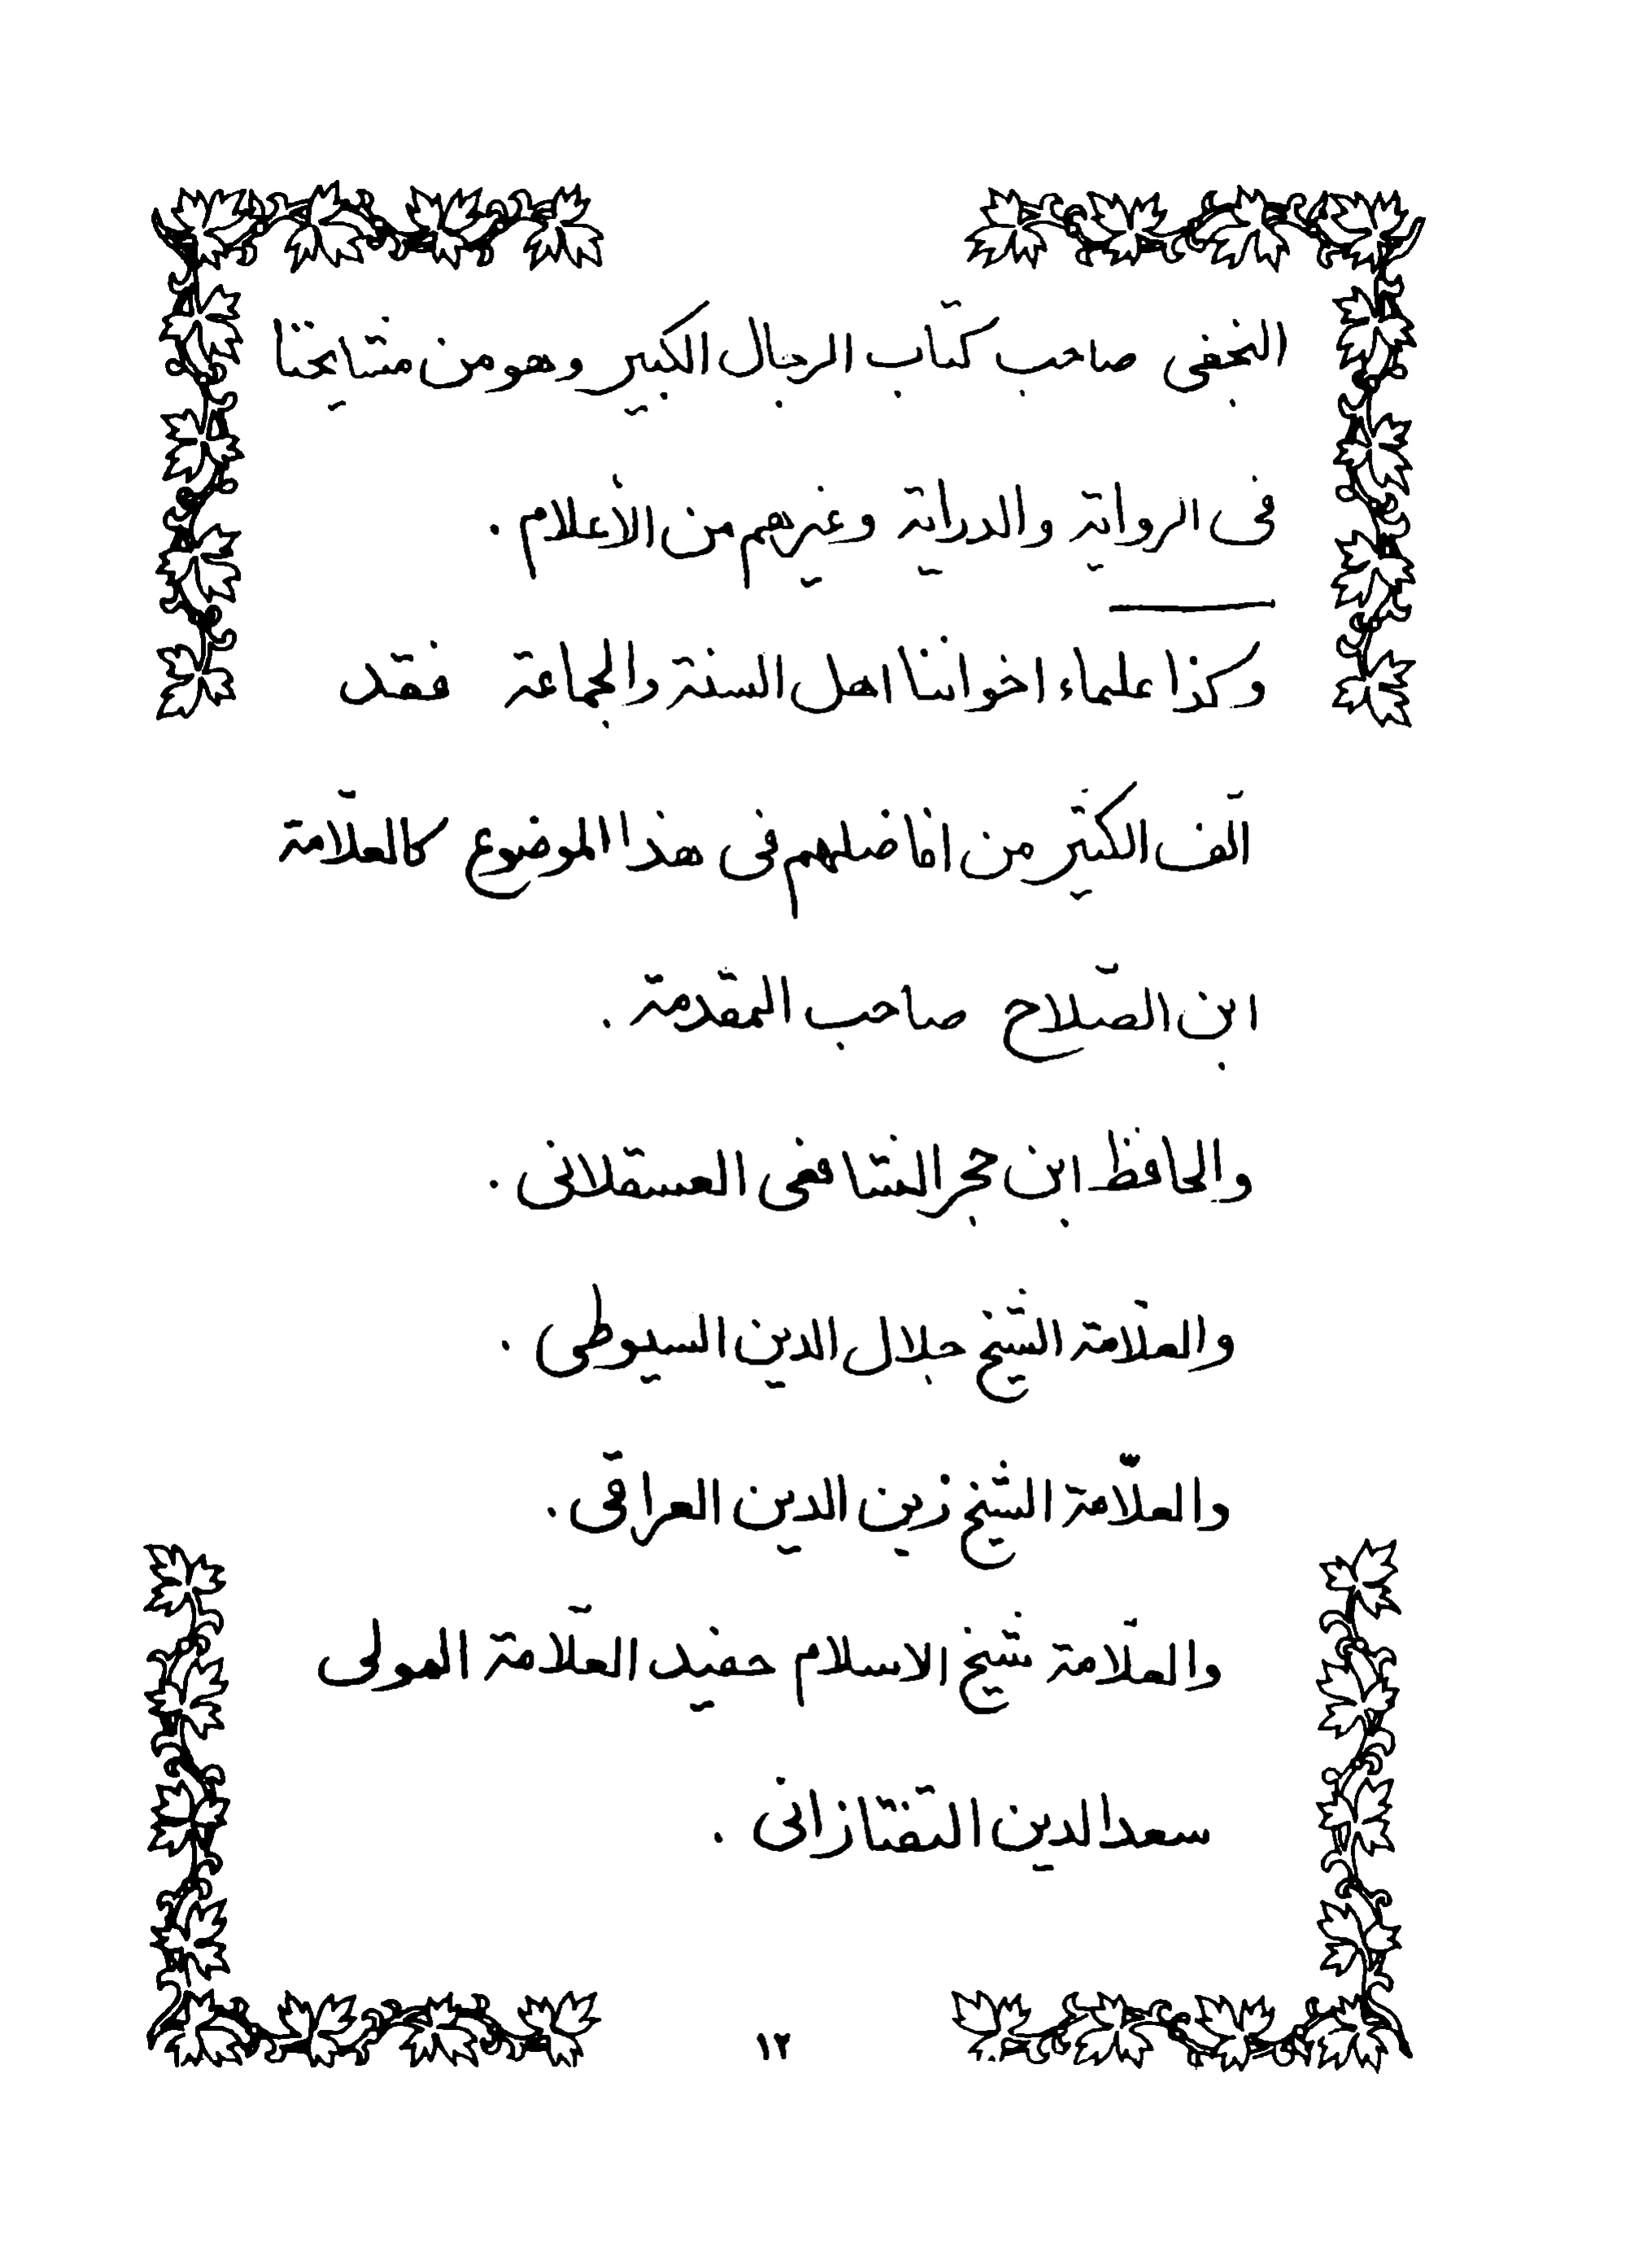 النجفى صاحب كتاب الرجال الكبير وهو من مشايخنا
فى الرواية والدراية وغيرهم من الأعلام .
وكذا علماء اخواننا اهل السنة والجماعة فقد
الّف الكثير من افاضلهم فى هذا الموضوع كالعلّامة
ابن الصّلاح صاحب المقدمة .
والحافظ ابن حجر الشافعى العسقلانى .
والعلّامة الشيخ جلال الدين السيوطى .
والعلّامة الشيخ زين الدين العراقى .
والعلّامة شيخ الاسلام حفيد العلّامة المولى
سعد الدين التفتازانى .
١٢